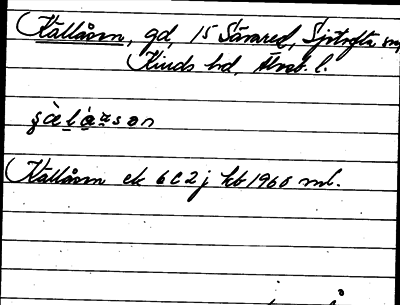 Kallåsen, gd, 15 Sävared, Sjötofta sn,
Kinds hd, Älvsb. l.
Kallåsen ek 6C2j kb 1966 ml.